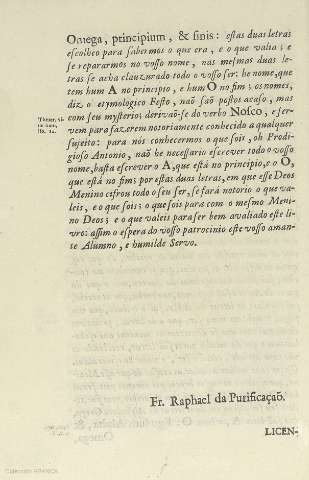 Omega, principium, & finis: estas duas letras
escolheo para sabermos o que era, e o que valia; e
se repararmos no vosso nome, nas mesmas duas le-
tras se acha clauzurado todo o vosso ser: he nome, que
tem hum A no principio, e hum O no fim; os nomes,
diz o etymologico Festo, naõ saõ postos acaso, mas
com seu mysterio; derivaõ-se do verbo Nosco, e ser-
vem para fazerem notoriamente conhecido a qualquer
sujeito: para nós conhecermos o que sois, oh Prodi-
gioso Antonio, naõ he necessario escrever todo o vosso
nome, basta escrever o A, que está no principio, e o O,
que está no fim; por estas duas letras, em que esse Deos
Menino cifrou todo o seu ser, se fará notorio o que va-
leis, e o que sois: o que sois para com o mesmo Meni-
no Deos; e o que valeis para ser bem avaliado este li-
vro: assim o espera do vosso patrocinio este vosso aman-
te Alumno, e humilde Servo.
Fr. Raphael da Purificaçaõ.
LICEN-